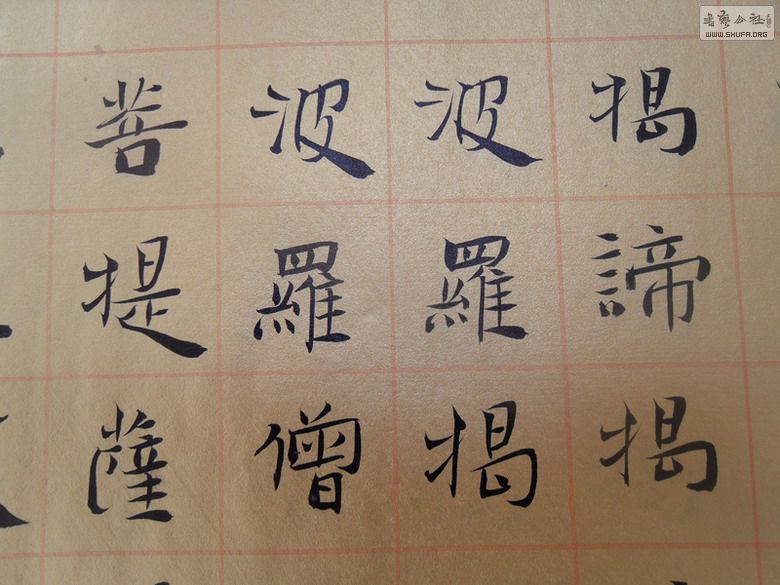 揭諦揭
波羅揭
波羅僧
菩提薩
書藝公社
WWW.SHUFA.ORG